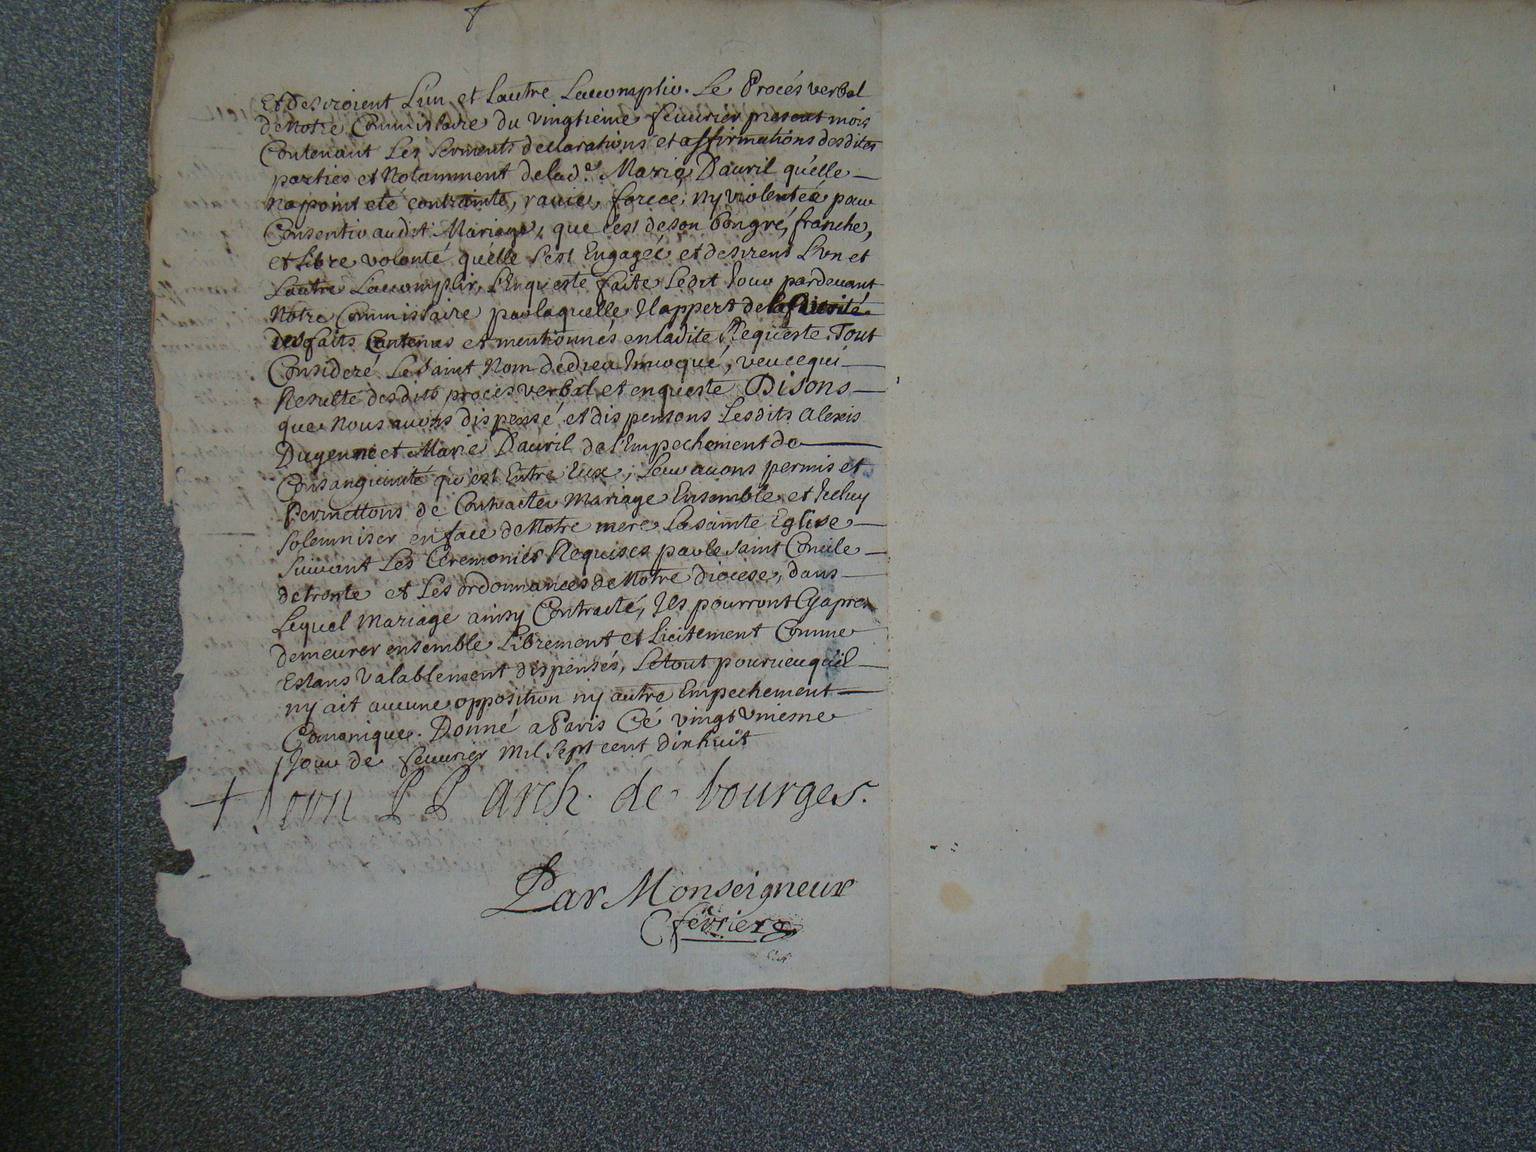 Et desiroient L'un et Lautre Laccomplir. Le Procés verbal
de Notre Commissaire du vingtieme feuurier present mois
Contenant Les serments declarations et affirmations desdites
parties et Notamment de lad.e Marie Dauril qu'elle
na point eté contrainte, rauie, forcée, ny violentée pour
Consentir audit Mariage, que c'est de son bongré, franche,
et Libre volonté qu'elle s'est Engageé et desirent L'un et
Lautre Laccomplir, L'Enqueste faite Ledit Jour pardeuant
Notre Commissaire par laquelle Il appert de la Verité
des faits Contenus et mentionnés en ladite Requeste. Tout
Consideré. Le Saint Nom de dieu Inuoqué, veu ce qui
Resulte desdits procés verbal et enqueste Disons
que Nous auons dispensé, et dispensons Lesdits Alexis
Duyenne et Marie Dauril de l'Empechement de
Consanguinité qui est Entre Eux, Leur auons permis et
Permettons de Contracter Mariage Ensemble et Iceluy
solemniser en face de Notre mere La sainte Eglise
suiuant Les Ceremonies Requises par le Saint Concile
de trente et Les ordonnances de Notre diocese, dans
Lequel Mariage ainsy Contracté, Ils pourront Cyapres
demeurer ensemble Librement et Licitement Comme
Estans Valablement dispensés, Le tout pourueu qu'il
ny ait aucune opposition ny autre Empechement
Canonique. Donné a Paris Ce vingt Vniesme
Jour de feuurier Mil Sept cent dixhuit
+ Leon P P arch. de bourges.
Par Monseigneur
fevrier